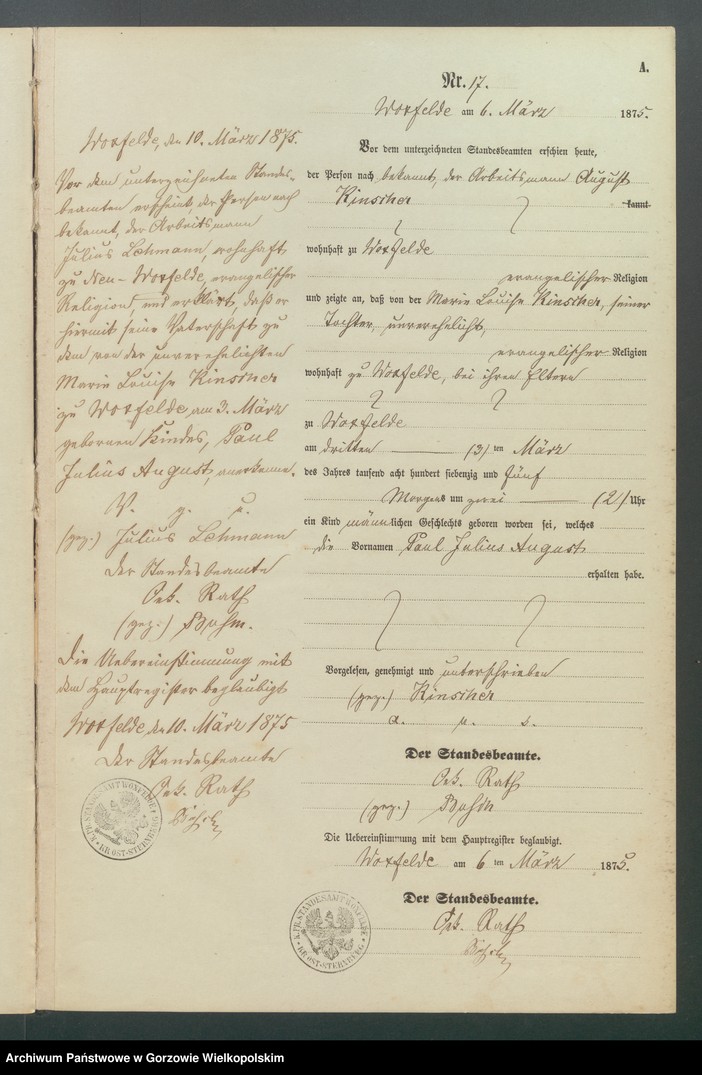 A.
Nr. 17.
Woxfelde am 6. März 1875.
Vor dem unterzeichneten Standesbeamten erschien heute,
der Person nach bekannt, der Arbeitsmann August
Kinscher
kannt
wohnhaft zu Woxfelde
evangelischer Religion
und zeigte an, daß von der Marie Louise Kinscher, seiner
Tochter, unverehelicht,
evangelischer Religion
wohnhaft zu Woxfelde, bei ihren Eltern
zu Woxfelde
am dritten (3) ten März
des Jahres tausend acht hundert siebenzig und fünf
Morgens um zwei (2) Uhr
ein Kind männlichen Geschlechts geboren worden sei, welches
die Vornamen Paul Julius August
erhalten habe.
Vorgelesen, genehmigt und unterschrieben
(gez.) Kinscher
a. u. s.
Der Standesbeamte.
Oek. Rath
(gez.) Bohm
Die Uebereinstimmung mit dem Hauptregister beglaubigt.
Woxfelde am 6 ten März 1875.
Der Standesbeamte.
Oek. Rath
K. PR. STANDESAMT WOXFELDE
KR. OST-STERNBERG
Woxfelde, den 10. März 1875.
Vor dem unterzeichneten Standes-
beamten erscheint, der Person nach
bekannt, der Arbeitsmann
Julius Lehmann, wohnhaft
zu Neu-Woxfelde, evangelischer
Religion, und erklärt, daß er
hiermit seine Vaterschaft zu
dem von der unverehelichten
Marie Louise Kinscher
zu Woxfelde am 3. März
gebornen Kindes, Paul
Julius August, anerkenne.
V. g. u.
(gez.) Julius Lehmann
Der Standesbeamte
Oek. Rath
(gez.) Bohm.
Die Uebereinstimmung mit
dem Hauptregister beglaubigt
Woxfelde, den 10. März 1875
Der Standesbeamte
Oek. Rath
K. PR. STANDESAMT WOXFELDE
KR. OST-STERNBERG
Archiwum Państwowe w Gorzowie Wielkopolskim